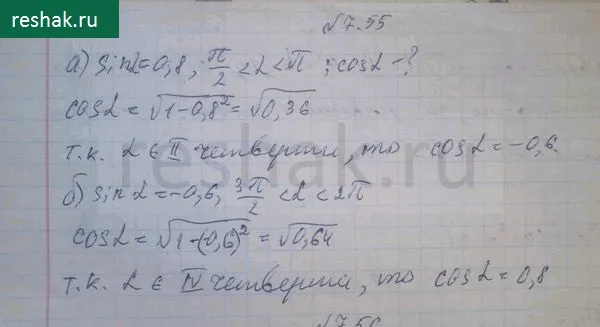 reshak.ru
№7.55
а) sinα=0,8, π/2 <α<π ; cosα-?
cosα=√1-0,8² = √0,36
т.к. α ∈ II четверти, то cosα=-0,6.
reshak.ru
б) sinα=-0,6, 3π/2 <α<2π
cosα=√1-(0,6)² = √0,64
т.к. α ∈ IV четверти, то cosα=0,8
№7.56